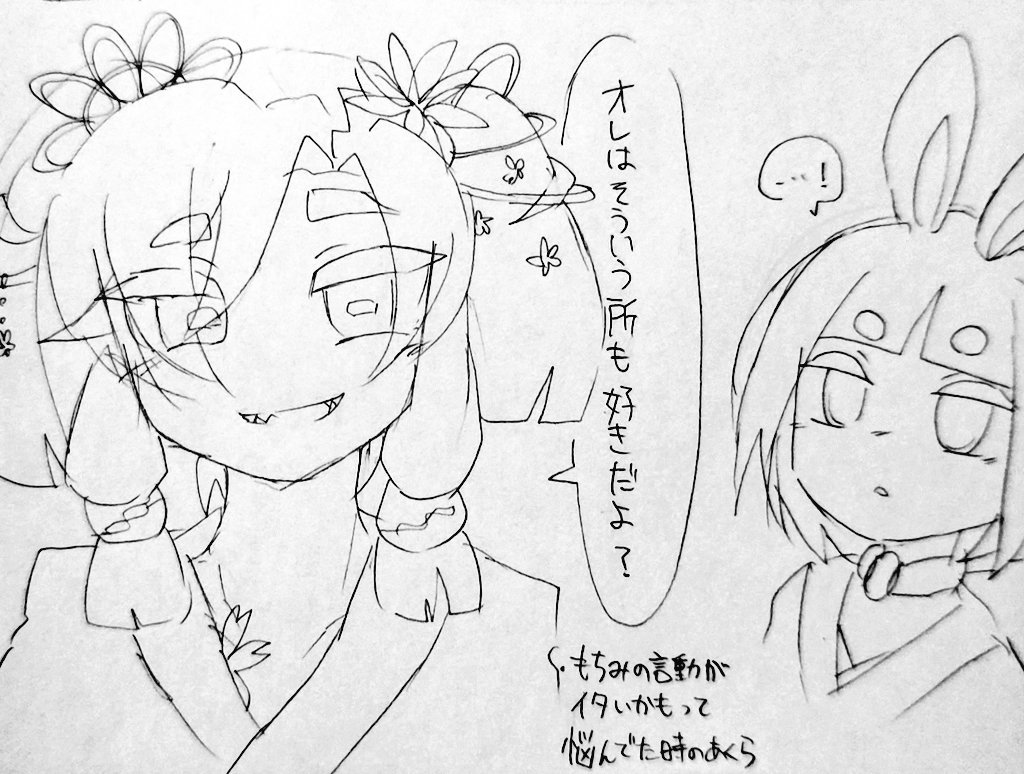 オレはそういう所も好きだよ?
…!
もちみの言動が
イタいかもって
悩んでた時のあくら